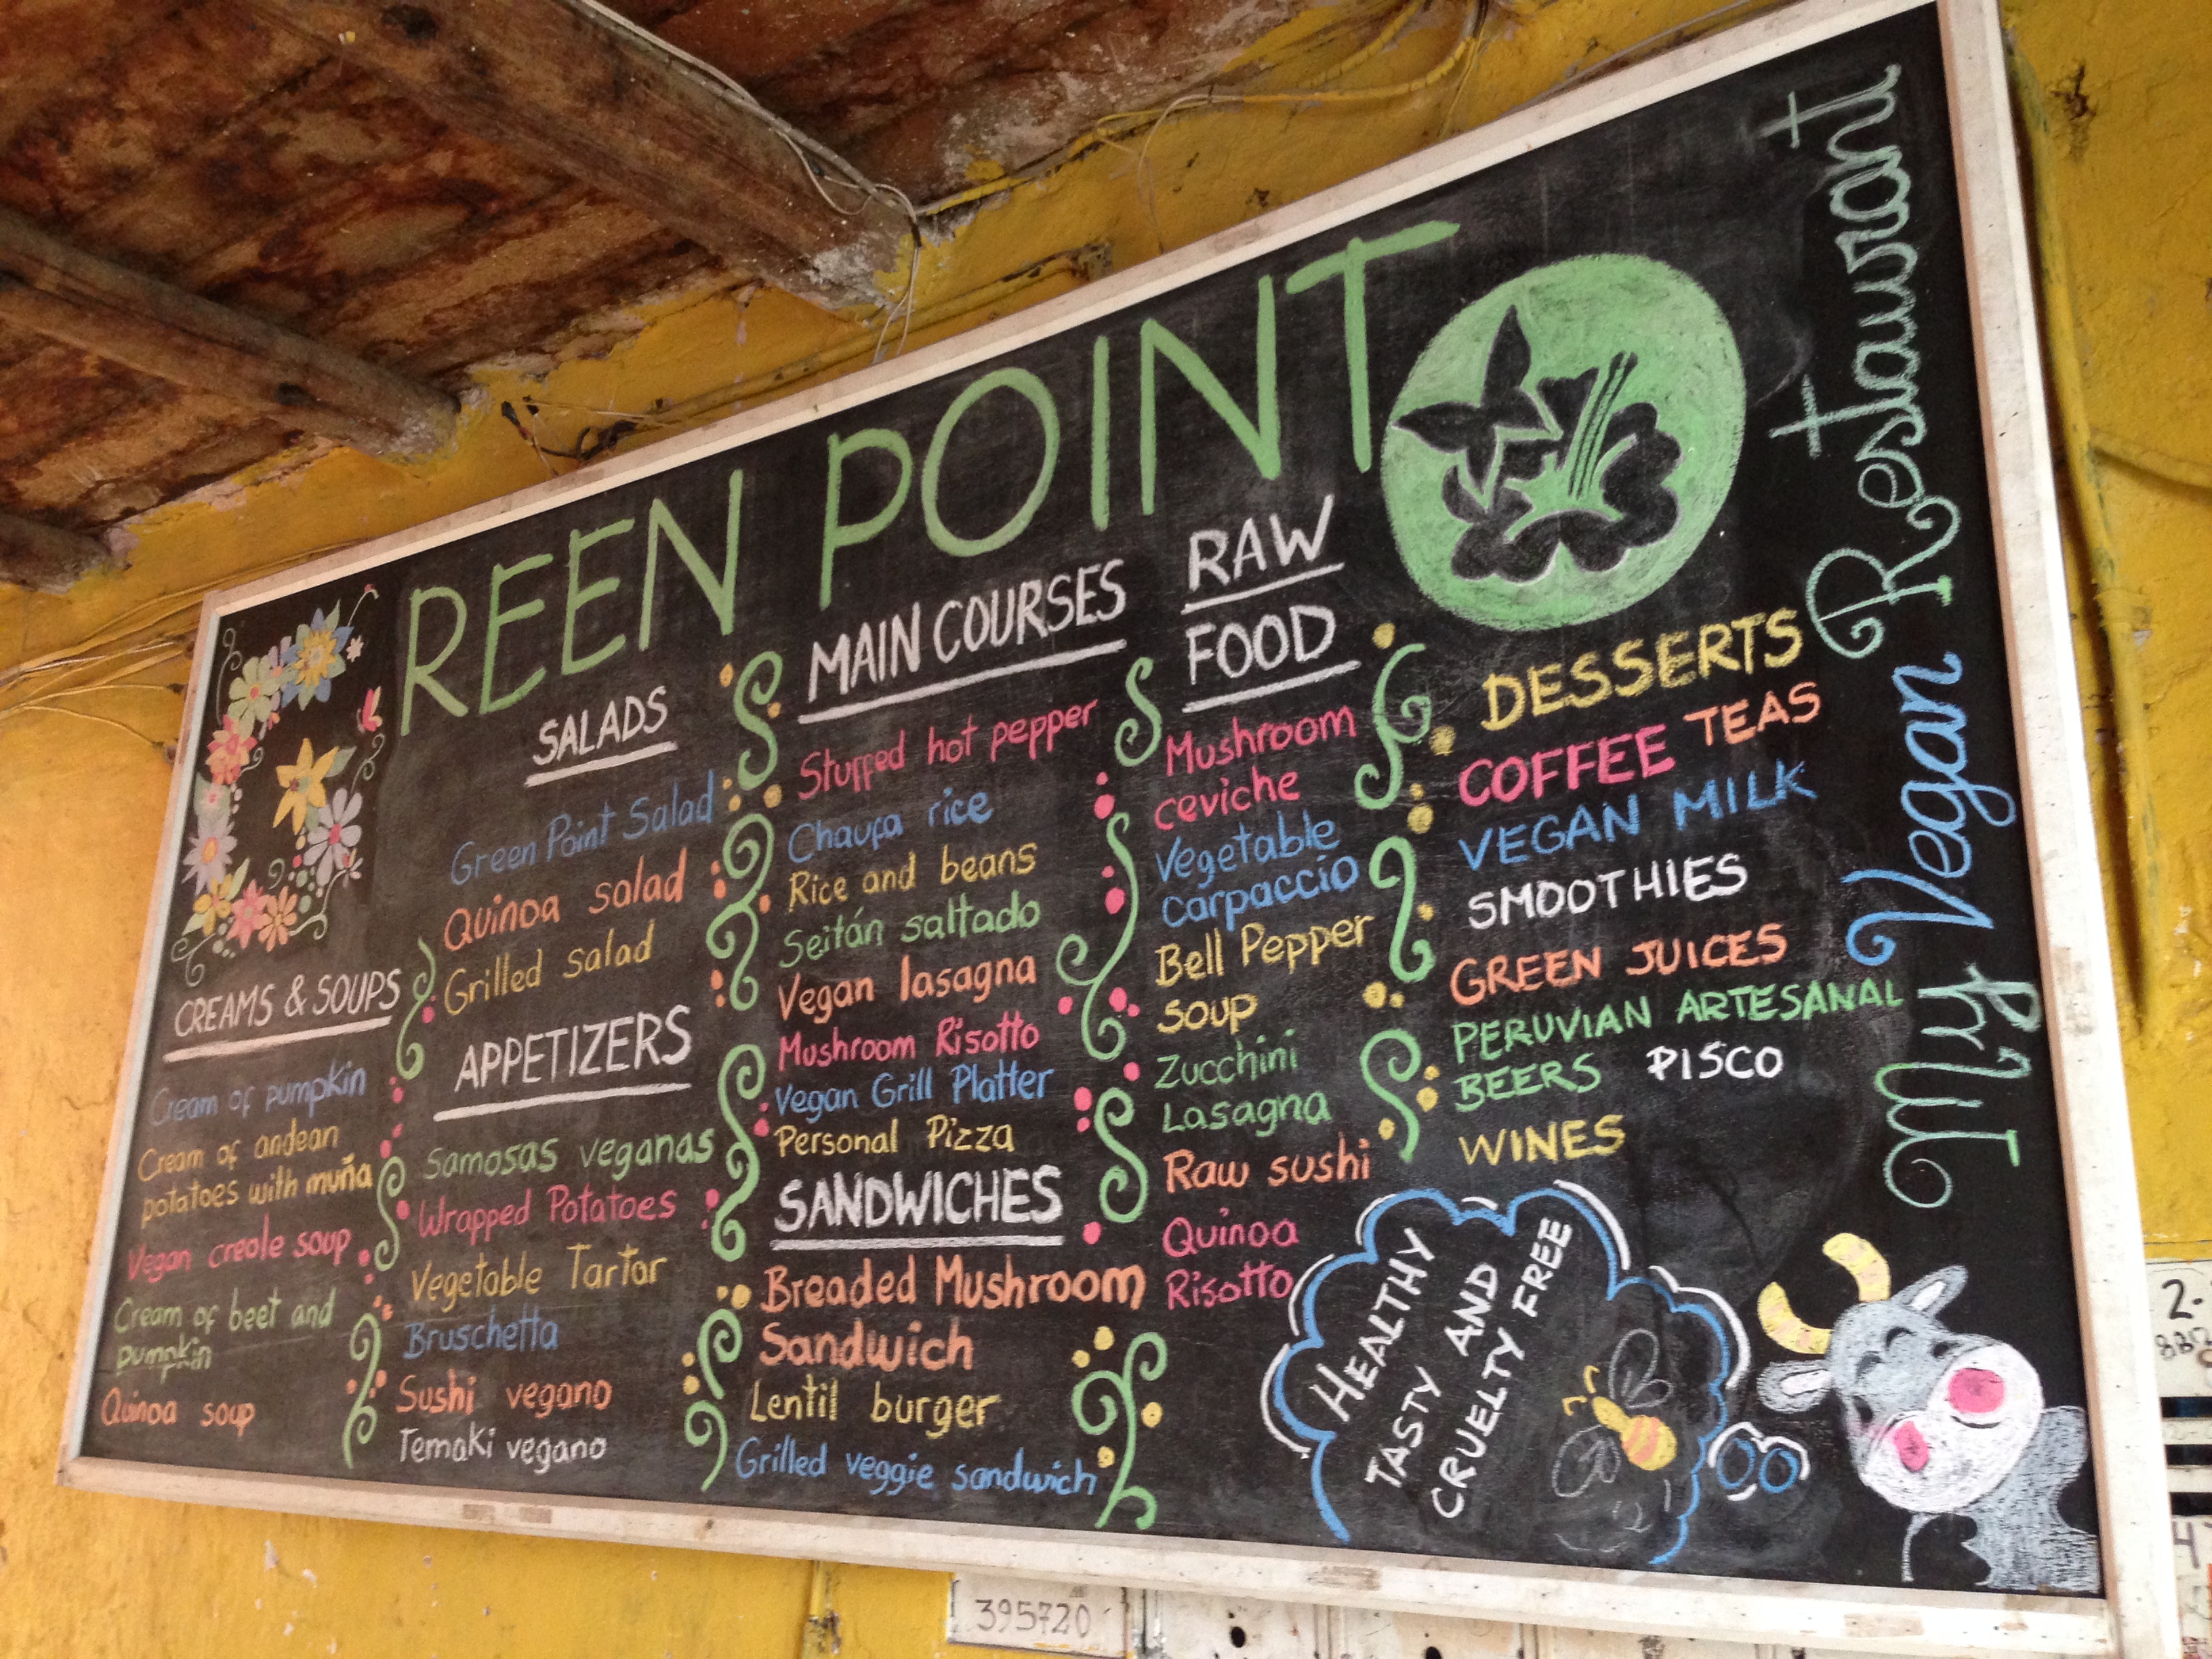 GREEN POINT
CREAMS & SOUPS
Cream of pumpkin
Cream of andean
potatoes with muña
Vegan creole soup
Cream of beet and
pumpkin
Quinoa soup
SALADS
Green Point Salad
Quinoa salad
Grilled salad
APPETIZERS
Samosas veganas
Wrapped Potatoes
Vegetable Tartar
Bruschetta
Sushi vegano
Temaki vegano
MAIN COURSES
Stuffed hot pepper
Chaufa rice
Rice and beans
Seitán saltado
Vegan lasagna
Mushroom Risotto
Vegan Grill Platter
Personal Pizza
SANDWICHES
Breaded Mushroom
Sandwich
Lentil burger
Grilled veggie sandwich
RAW
FOOD
Mushroom
ceviche
Vegetable
carpaccio
Bell Pepper
soup
Zucchini
Lasagna
Raw sushi
Quinoa
Risotto
DESSERTS
COFFEE TEAS
VEGAN MILK
SMOOTHIES
GREEN JUICES
PERUVIAN ARTESANAL
BEERS PISCO
WINES
HEALTHY
TASTY AND
CRUELTY FREE
My Vegan Restaurant
395720